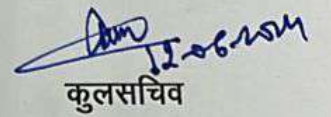 12-06-2024
कुलसचिव